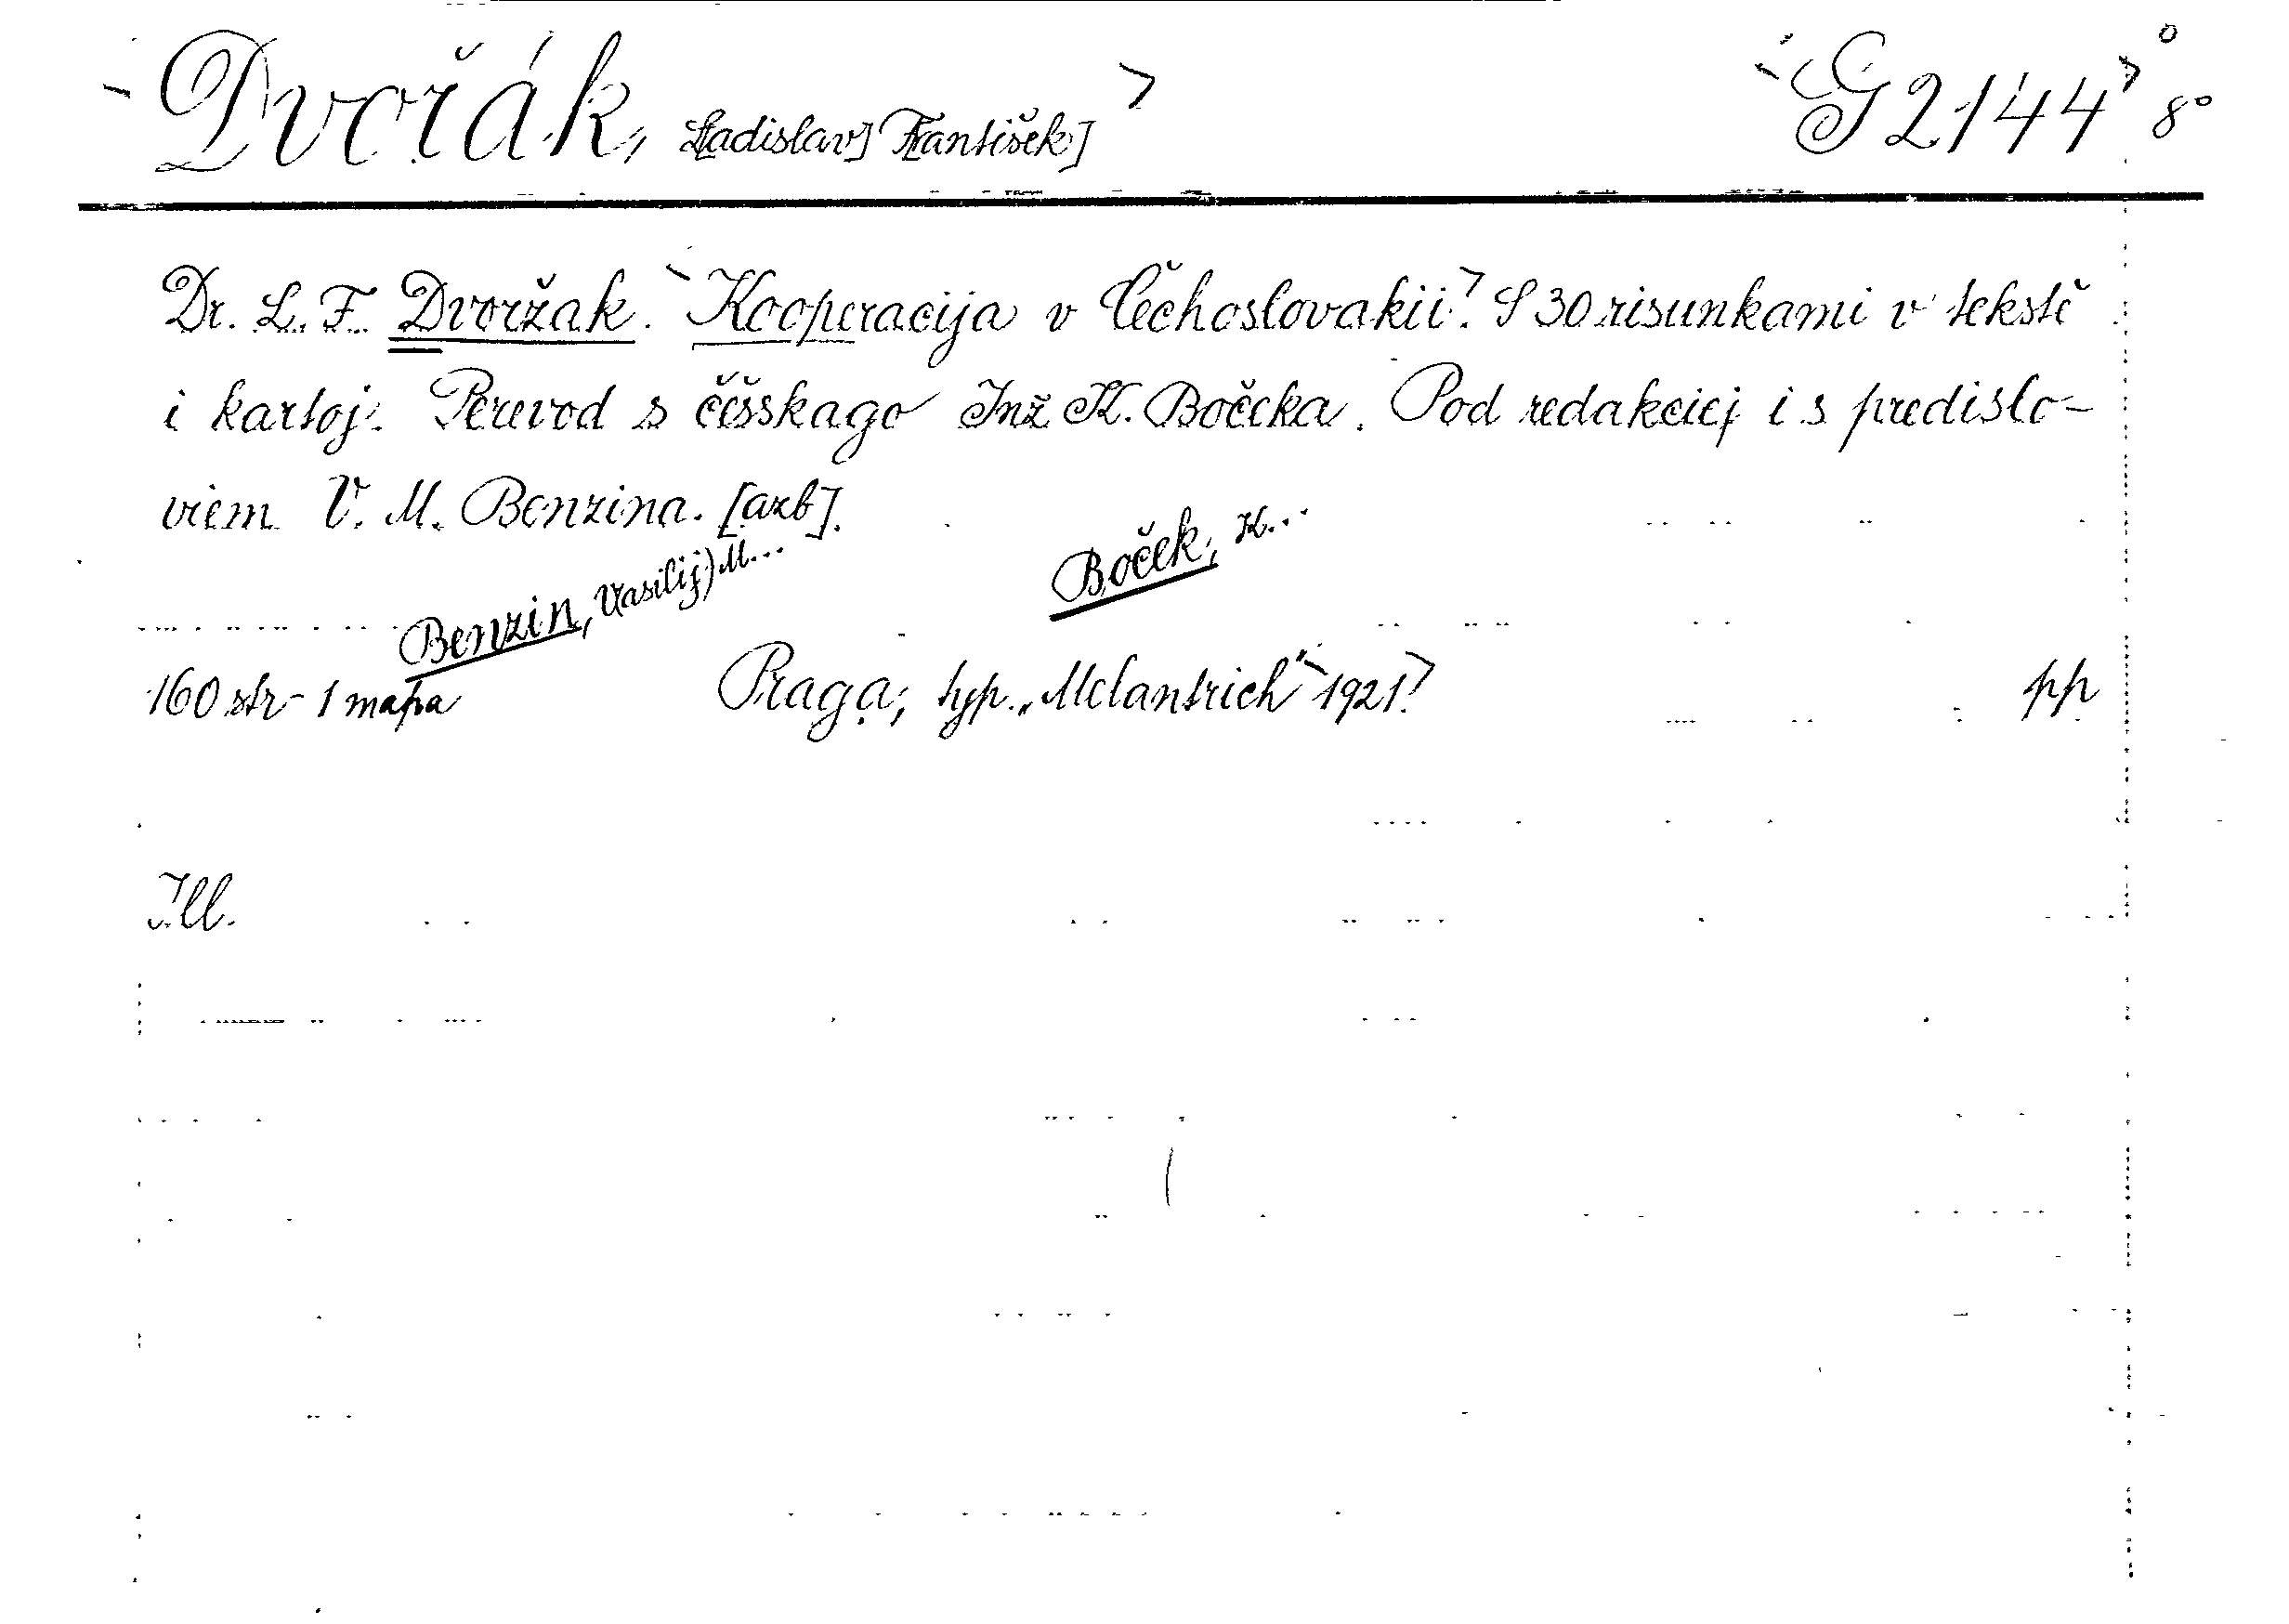 Dvořák, L[adislav] F[rantišek] G 2144 8°
Dr. L. F. Dvoržak. Kooperacija v Čěchoslovakii. S 30 risunkami v tekstě
i kartoj. Perevod s češskago Inž K. Bočeka. Pod redakciej i s predislo-
viem V. M. Benzina. [azb].
Benzin, V(asilij) M... Boček, K...
160 str - 1 mapa Praga, typ. „Melantrich" 1921. pp
Ill.